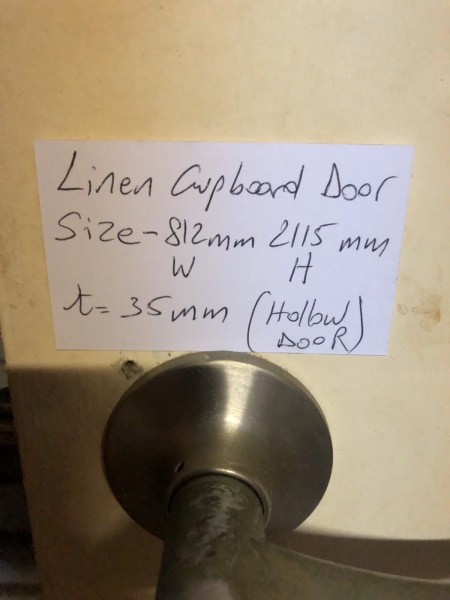 Linen Cupboard Door
Size - 812mm 2115 mm
W H
t = 35mm (Hollow
DOOR)